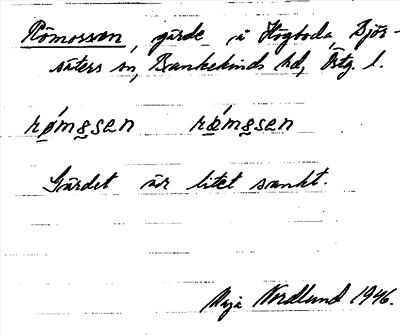 Römossen, gärde å Högboda, Björ-
säters sn, Bankekinds hd, Östg. l.
rǿmo̤sen rǿmo̤sen
Gärdet är litet sankt.
Maja Nordlund 1946.